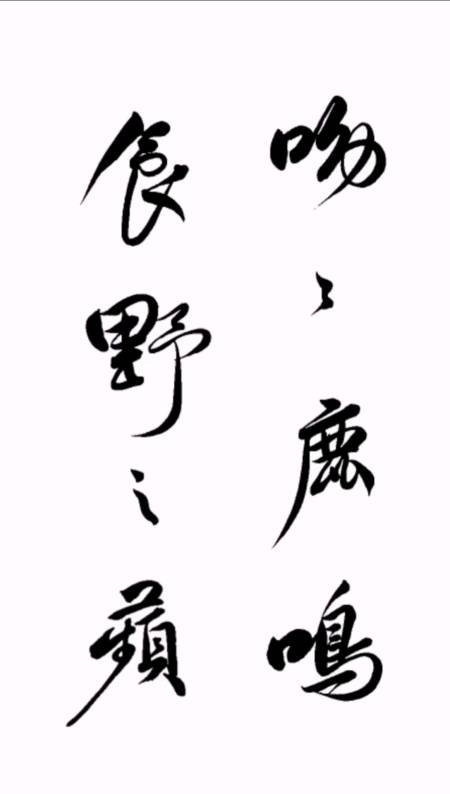 呦〻鹿鳴
食野之蘋